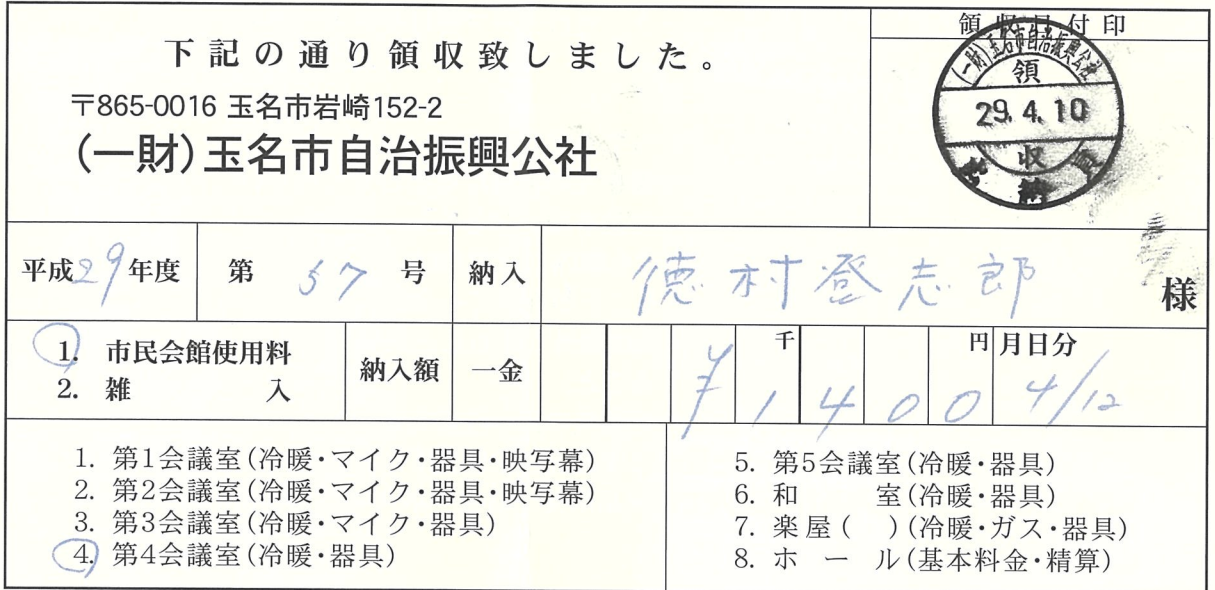 下記の通り領収致しました。
〒865-0016 玉名市岩崎152-2
(一財)玉名市自治振興公社
領収日付印
(一財)玉名市自治振興公社
領
29.4.10
収
平成29年度 第 57 号 納入 徳村登志郎 様
1. 市民会館使用料
2. 雑入
納入額 一金 ¥1400 千 円
月日分
4/12
1. 第1会議室(冷暖・マイク・器具・映写幕)
2. 第2会議室(冷暖・マイク・器具・映写幕)
3. 第3会議室(冷暖・マイク・器具)
4. 第4会議室(冷暖・器具)
5. 第5会議室(冷暖・器具)
6. 和室(冷暖・器具)
7. 楽屋( )(冷暖・ガス・器具)
8. ホール(基本料金・精算)